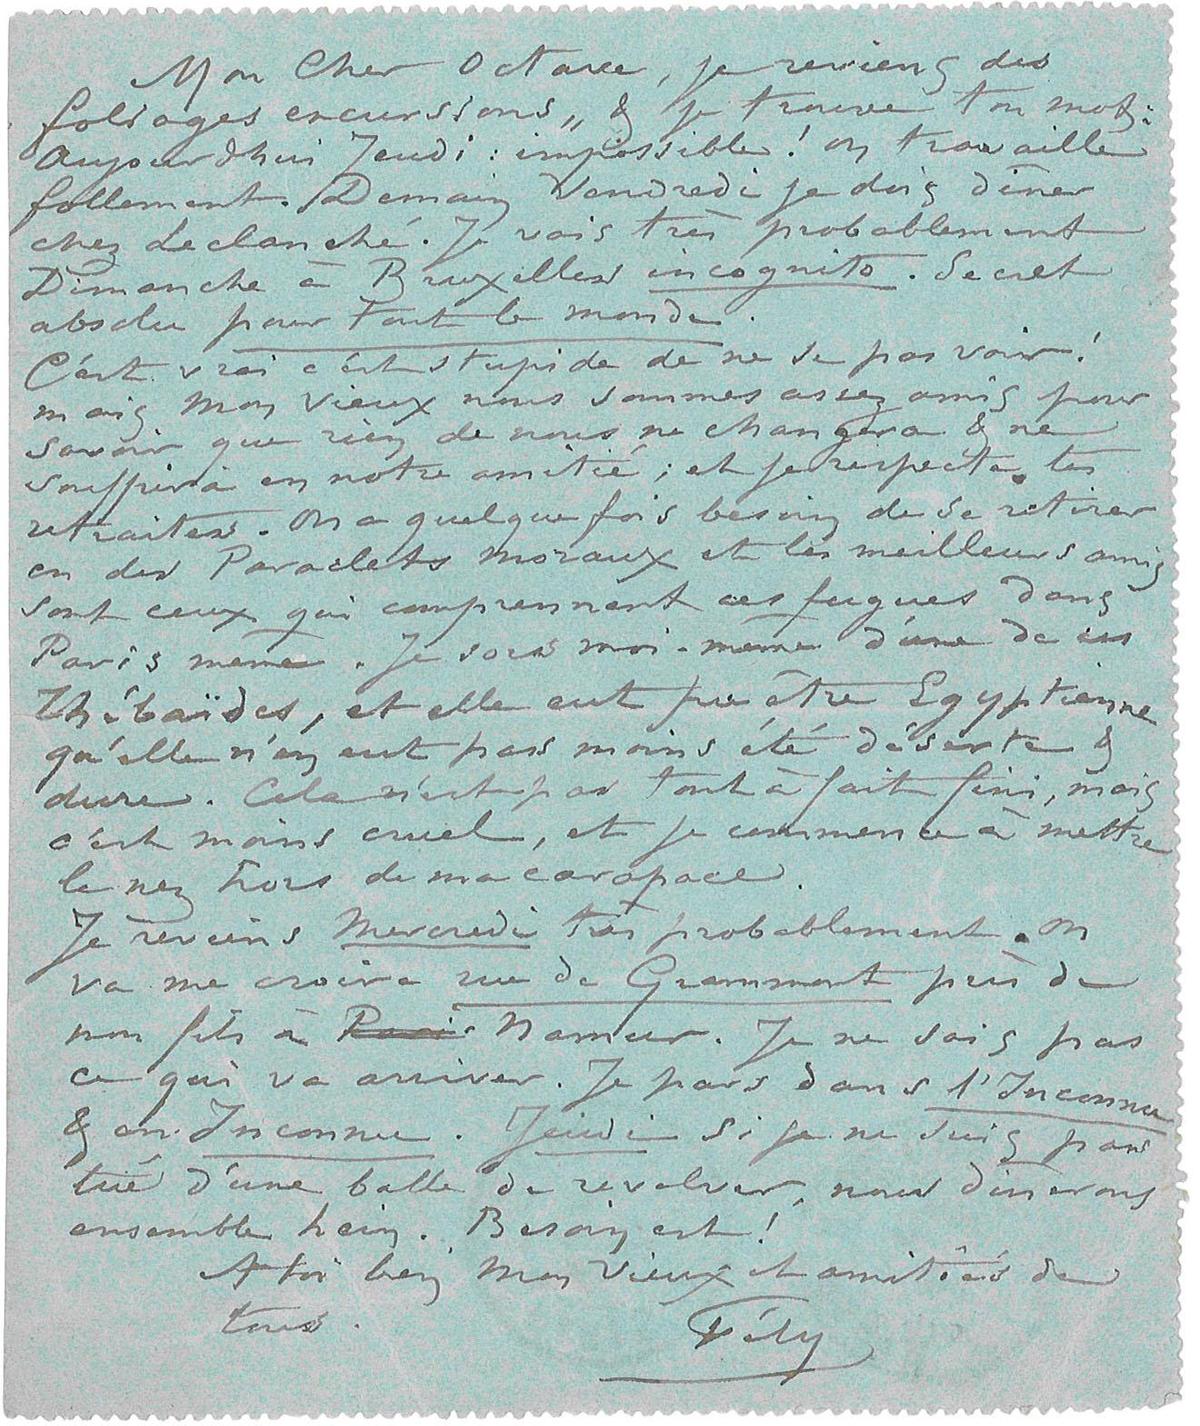 Mon Cher Octave, je reviens des
folsages excurssions,, & je trouve ton mot;:
Aujourdhui Jeudi : impossible ! on travaille
follement. Demain Vendredi je dois dîner
chez Leclanché. Je vais très probablement
Dimanche à Bruxelles incognito. Secret
absolu pour tout le monde.
C'est vrai c'est stupide de ne se pas voir !
mais Mon Vieux nous sommes assez amis pour
savoir que rien de nous ne changera & ne
souffrira en notre amitié ; et je respecte tes
retraites. On a quelque fois besoin de se retirer
en des Paraclets moraux et les meilleurs amis
sont ceux qui comprennent ces fugues dans
Paris meme. Je sors moi-meme d'une de ces
Thébaïdes, et elle eut pu être Egyptienne
qu'elle n'en eut pas moins été déserte &
dure. Cela n'est pas tout à fait fini, mais
c'est moins cruel, et je commence à mettre
le nez hors de ma carapace.
Je reviens Mercredi très probablement. On
va me croire rue de Grammont près de
mon fils à Paris Namur. Je ne sais pas
ce qui va arriver. Je pars dans l'Inconnu
& en Inconnu. Jeudi si je ne suis pas
tué d'une balle de revolver, nous dinerons
ensemble hein. Besoin est !
A toi bien Mon Vieux et amitiés de
tous.
Fély